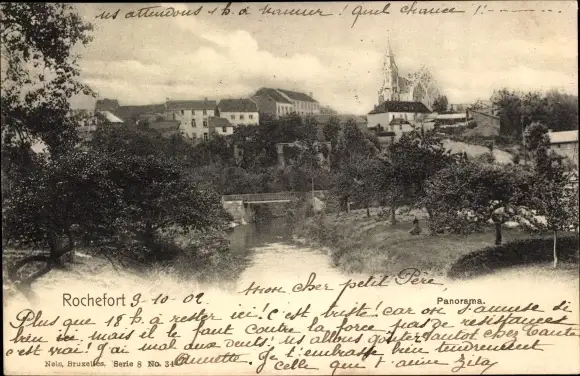 ns attendons 1 h. à Hannut! Quel chance!!
Rochefort 9-10-02
Mon cher petit Père,
Panorama.
Plus que 18 h. à rester ici! C'est triste! car on s'amuse si
bien ici, mais il le faut contre la force pas de resistances
c'est vrai! J'ai mal aux dents! ns allons goûter tantot chez tante
Annette. Je t'embrasse bien tendrement
Nels, Bruxelles. Serie 8 No. 34
celle que t'aime Zita